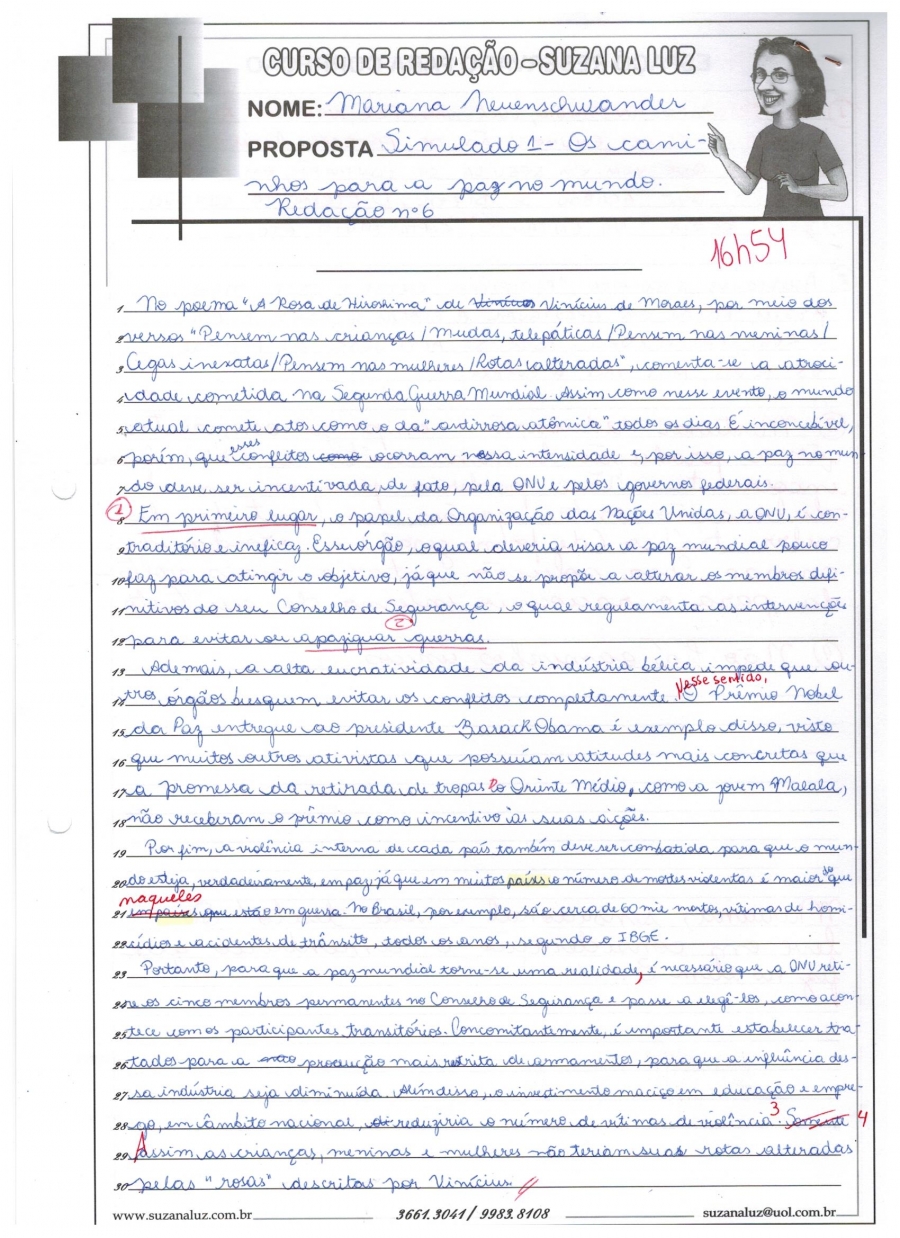 CURSO DE REDAÇÃO - SUZANA LUZ
NOME: Mariana Neuenschwander
PROPOSTA Simulado 1 - Os cami-
nhos para a paz no mundo.
Redação nº6
16h54
1 No poema "A Rosa de Hiroshima" de Vinícius Vinícius de Moraes, por meio dos
2 versos "Pensem nas crianças/Mudas, telepáticas/Pensem nas meninas/
3 Cegas inexatas/Pensem nas mulheres/Rotas alteradas", comenta-se a atroci-
4 dade cometida na Segunda Guerra Mundial. Assim como nesse evento, o mundo
5 atual comete atos como o da "antirrosa atômica" todos os dias. É inconcebível,
6 porém, que esses conflitos como ocorram nessa intensidade e, por isso, a paz no mun-
7 do deve ser incentivada, de fato, pela ONU e pelos governos federais.
1
8 Em primeiro lugar, o papel da Organização das Nações Unidas, a ONU, é con-
9 traditório e ineficaz. Esse órgão, o qual deveria visar a paz mundial pouco
10 faz para atingir o objetivo, já que não se propõe a alterar os membros defi-
11 nitivos do seu Conselho de Segurança, o qual regulamenta as intervenções
2
12 para evitar ou apaziguar guerras.
13 Ademais, a alta lucratividade da indústria bélica impede que ou-
14 tros órgãos busquem evitar os conflitos completamente. Nesse sentido, O Prêmio Nobel
15 da Paz entregue ao presidente Barack Obama é exemplo disso, visto
16 que muitos outros ativistas que possuíam atitudes mais concretas que
17 a promessa da retirada de tropas do Oriente Médio, como a jovem Malala,
18 não receberam o prêmio como incentivo às suas ações.
19 Por fim, a violência interna de cada país também deve ser combatida para que o mun-
20 do esteja, verdadeiramente, em paz, já que em muitos países o número de mortes violentas é maior do que
naqueles
21 em países que estão em guerra. No Brasil, por exemplo, são cerca de 60 mil mortos, vítimas de homi-
22 cídios e acidentes de trânsito, todos os anos, segundo o IBGE.
23 Portanto, para que a paz mundial torne-se uma realidade, é necessário que a ONU reti-
24 re os cinco membros permanentes no Conselho de Segurança e passe a elegê-los, como acon-
25 tece com os participantes transitórios. Concomitantemente, é importante estabelecer tra-
26 tados para a não produção mais restrita de armamentos, para que a influência des-
27 sa indústria seja diminuída. Além disso, o investimento maciço em educação e empre-
28 go, em âmbito nacional, reduziria o número de vítimas de violência. 3 Somente 4
29 Assim as crianças, meninas e mulheres não teriam suas rotas alteradas
30 pelas "rosas" descritas por Vinícius.
www.suzanaluz.com.br 3661.3041 / 9983.8108 suzanaluz@uol.com.br